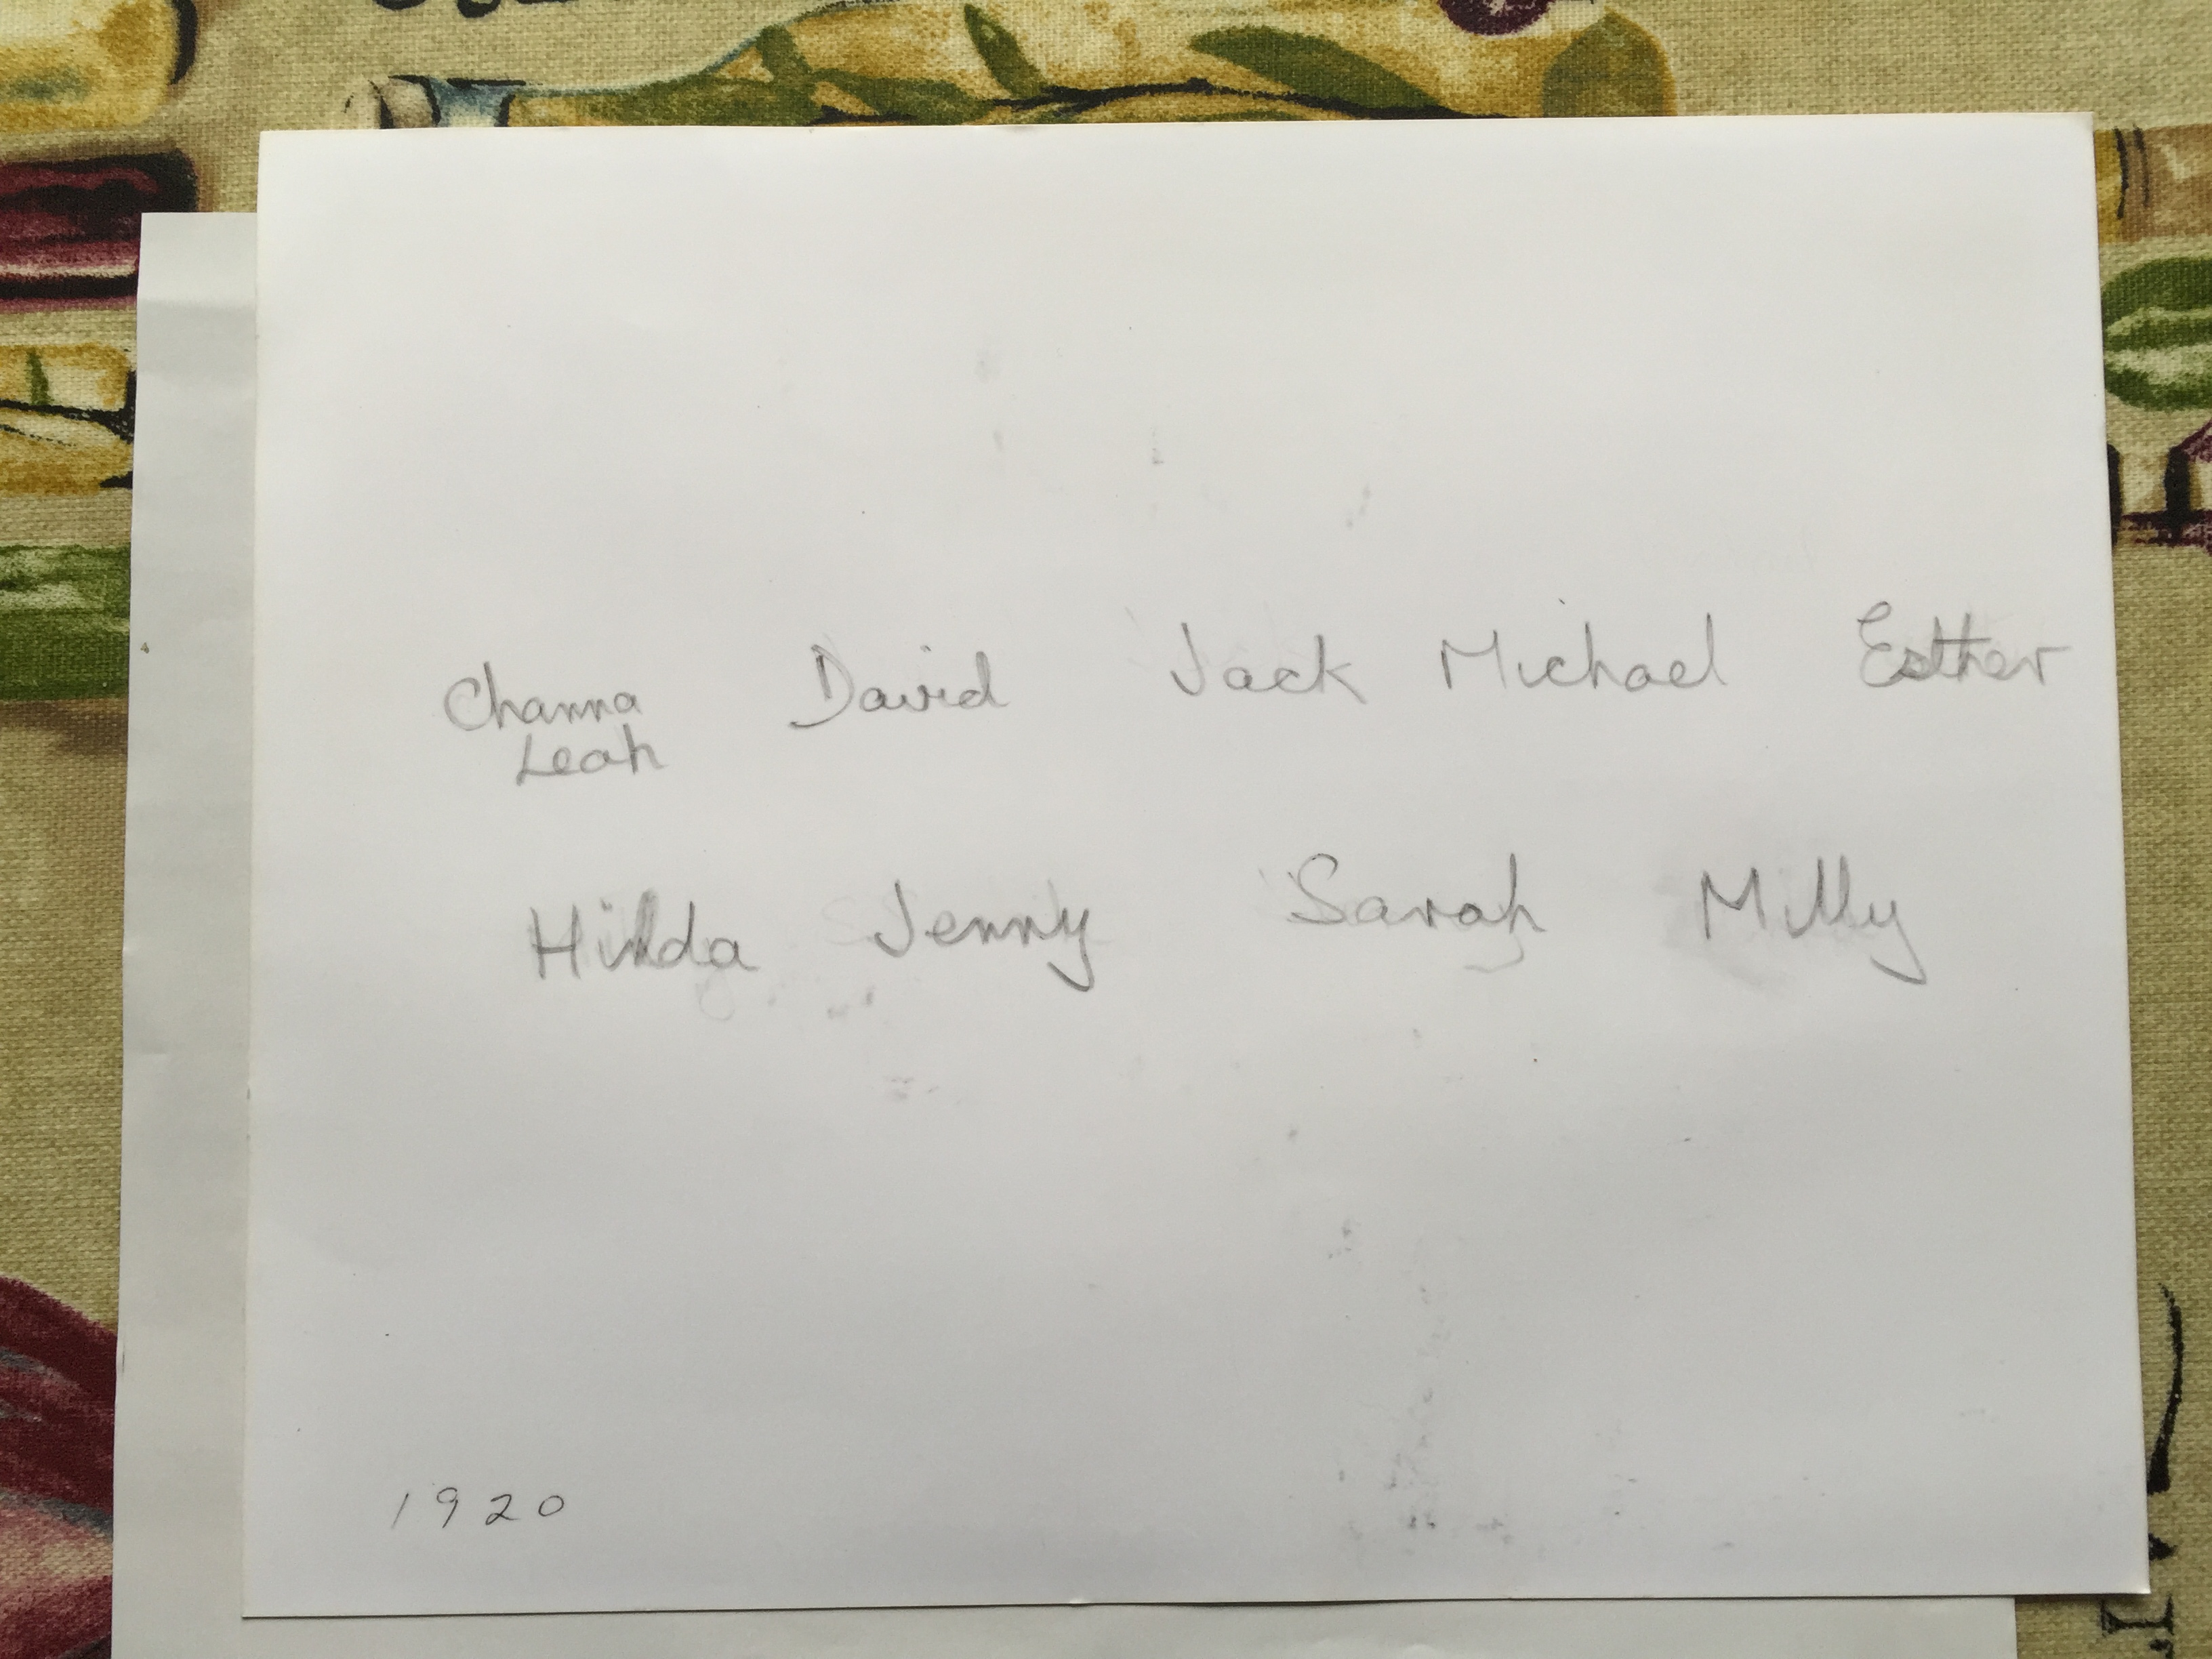 Channa David Jack Michael Esther
Leah
Hilda Jenny Sarah Milly
1920